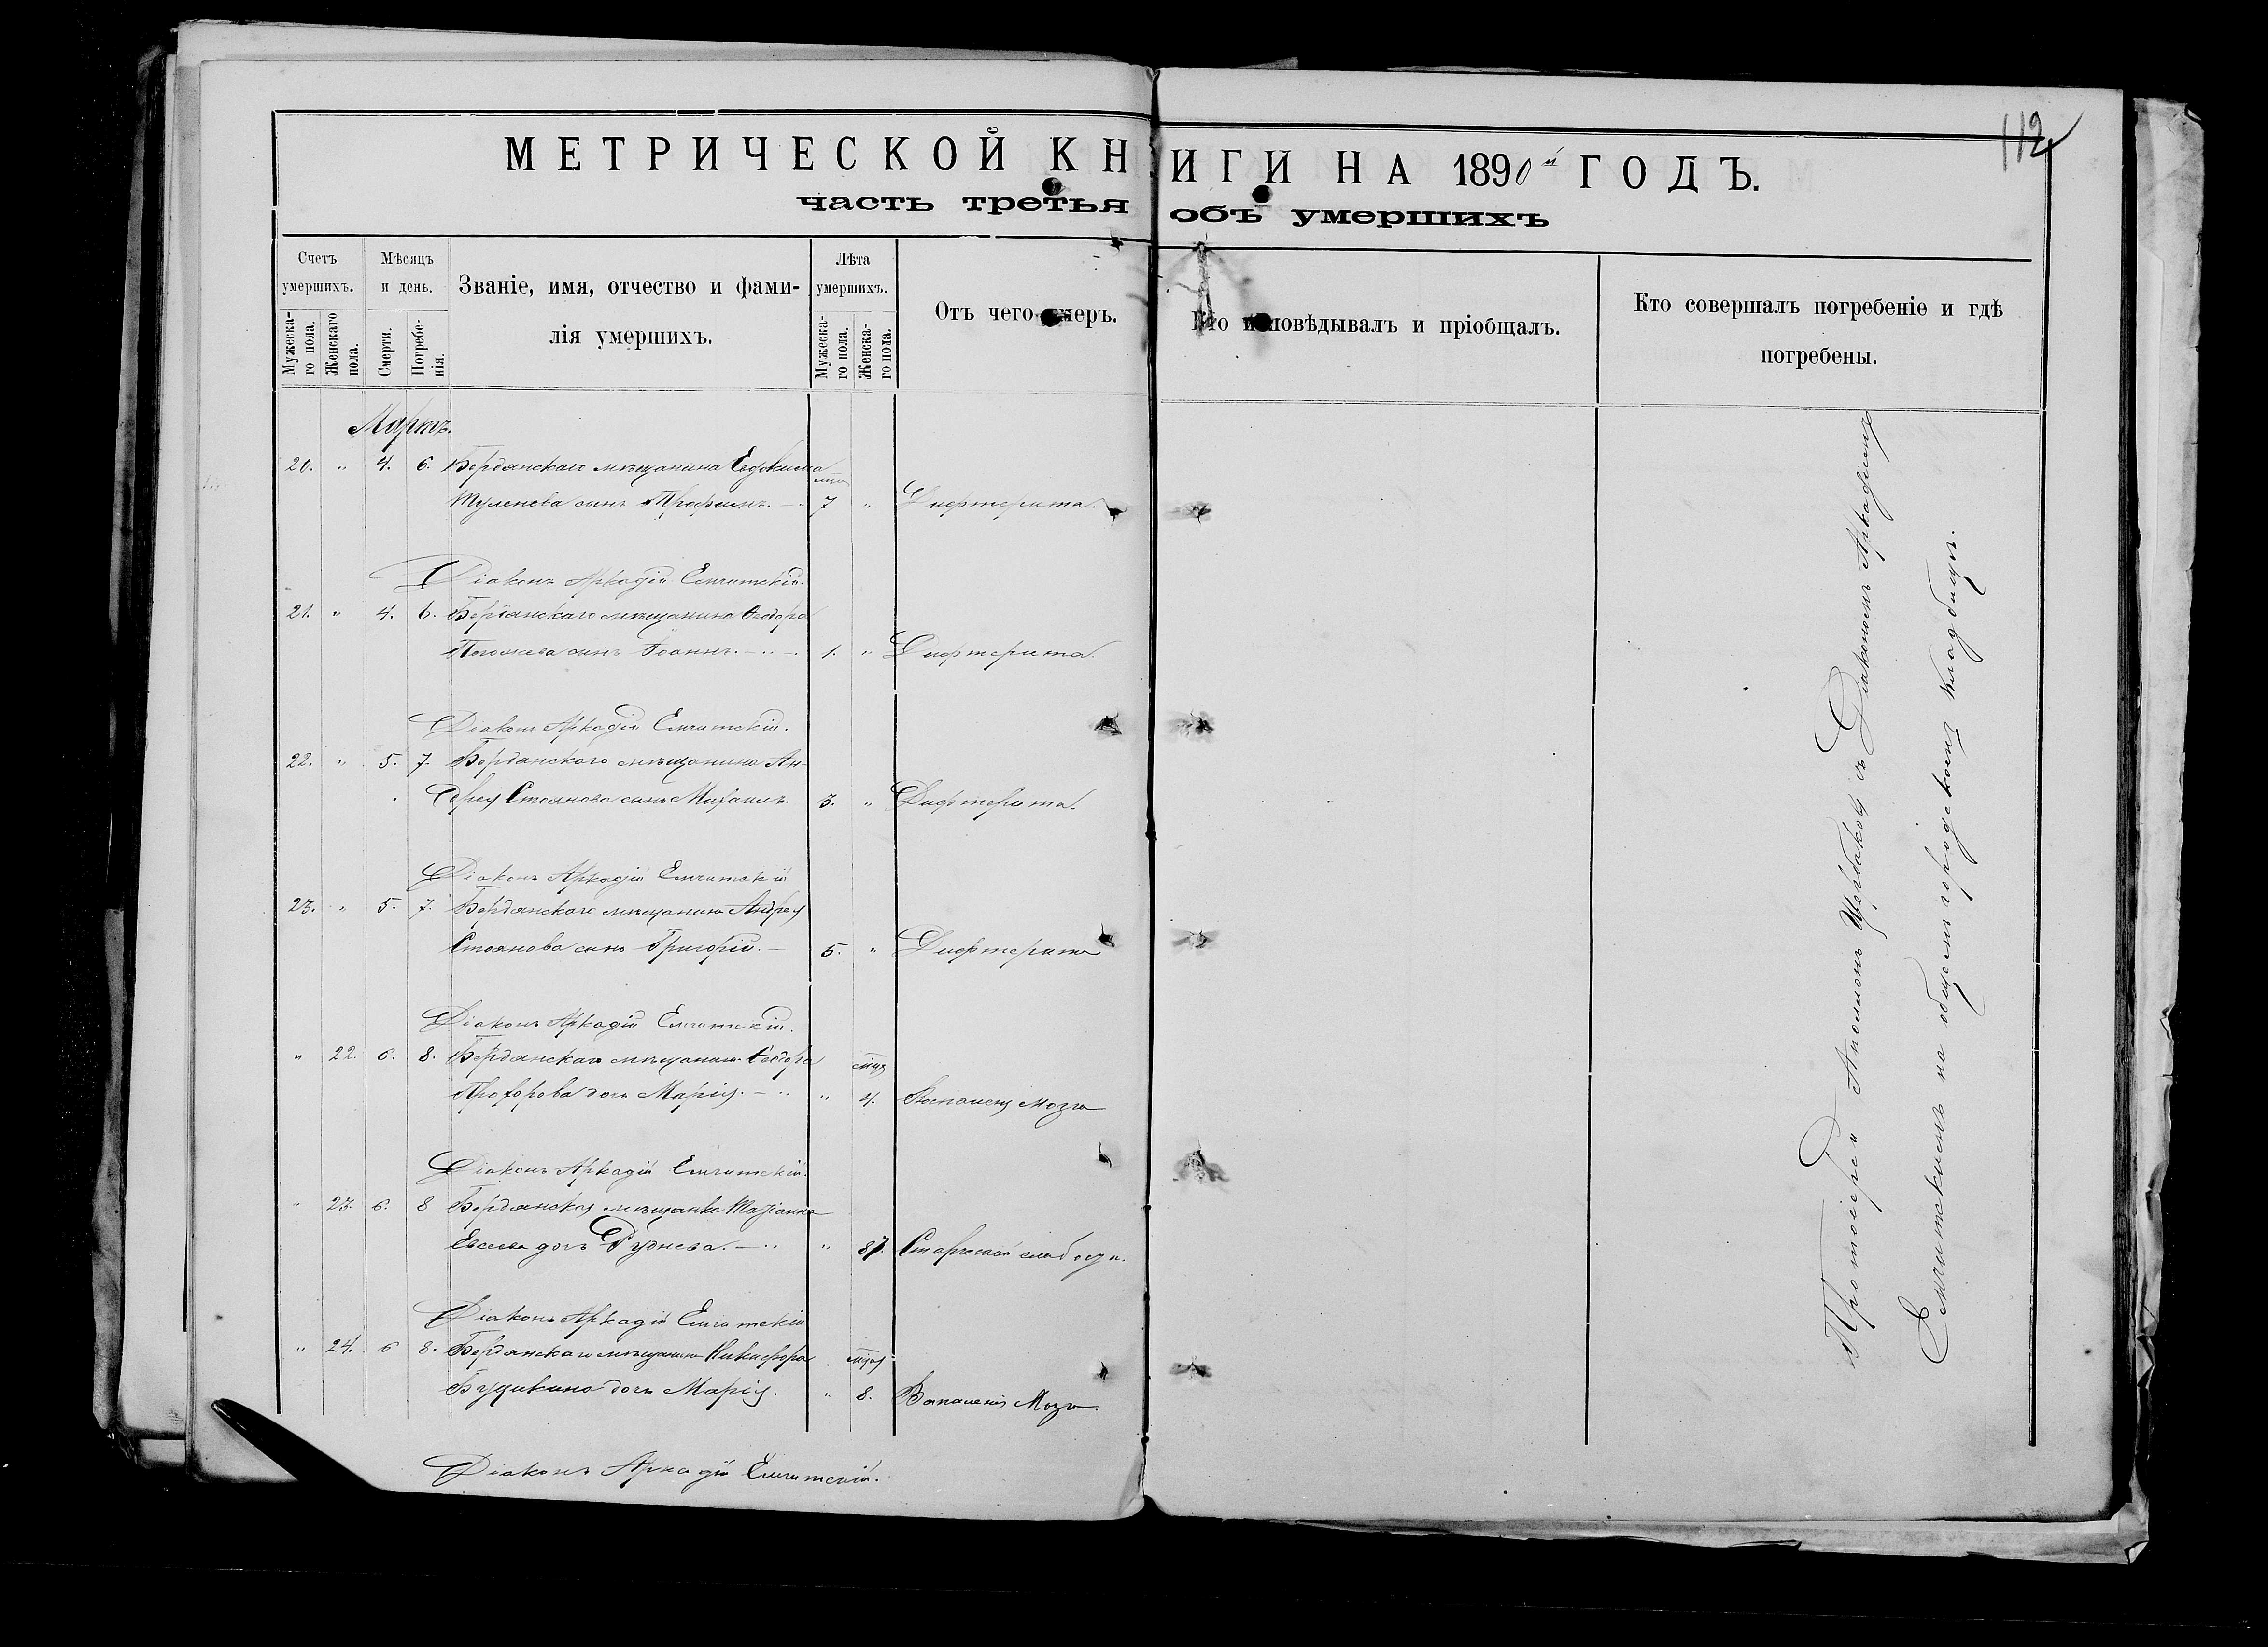 112
МЕТРИЧЕСКОЙ КНИГИ НА 1890й ГОДЪ.
часть третья объ умершихъ
Счетъ умершихъ.
Мужеска-го пола.
Женскаго пола.
Мѣсяцъ и день.
Смерти.
Погребе-нія.
Званіе, имя, отчество и фами-
лія умершихъ.
Лѣта умершихъ.
Мужеска-го пола.
Женска-го пола.
Отъ чего умеръ.
Кто исповѣдывалъ и пріобщалъ.
Кто совершалъ погребеніе и гдѣ
погребены.
Мартъ.
20. " 4. 6. Бердянскаго мѣщанина Евдокима
сынъ Трофимъ. 7 " Дифтерита.
Діаконъ Аркадій Емчитскій.
21. " 4. 6. Бердянскаго мѣщанина Ѳеодора
сынъ Іоаннъ. 1. " Дифтерита.
Діаконъ Аркадій Емчитскій.
22. " 5. 7. Бердянскаго мѣщанина Ан-
дрея Стоянова сынъ Михаилъ. 3. " Дифтерита.
Діаконъ Аркадій Емчитскій
23. " 5. 7. Бердянскаго мѣщанина Андрея
Стоянова сынъ Григорій. 5. " Дифтерита
Діаконъ Аркадій Емчитскій.
" 22. 6. 8. Бердянскаго мѣщанина Ѳеодора
Прохорова дочь Марія. " 4. Воспаленія мозга
Діаконъ Аркадій Емчитскій.
" 23. 6. 8 Бердянская мѣщанка
Евсеева дочь Руднева. " 87. Старческой слабости.
Діаконъ Аркадій Емчитскій
" 24. 6 8. Бердянскаго мѣщанина Никифора
дочь Марія. " 8. Воспаленія Мозга.
Діаконъ Аркадій Емчитскій.
Протоіерей Аполлонъ Щербаковъ съ Діакономъ Аркадіемъ
Емчитскимъ на общемъ городскомъ кладбищѣ.